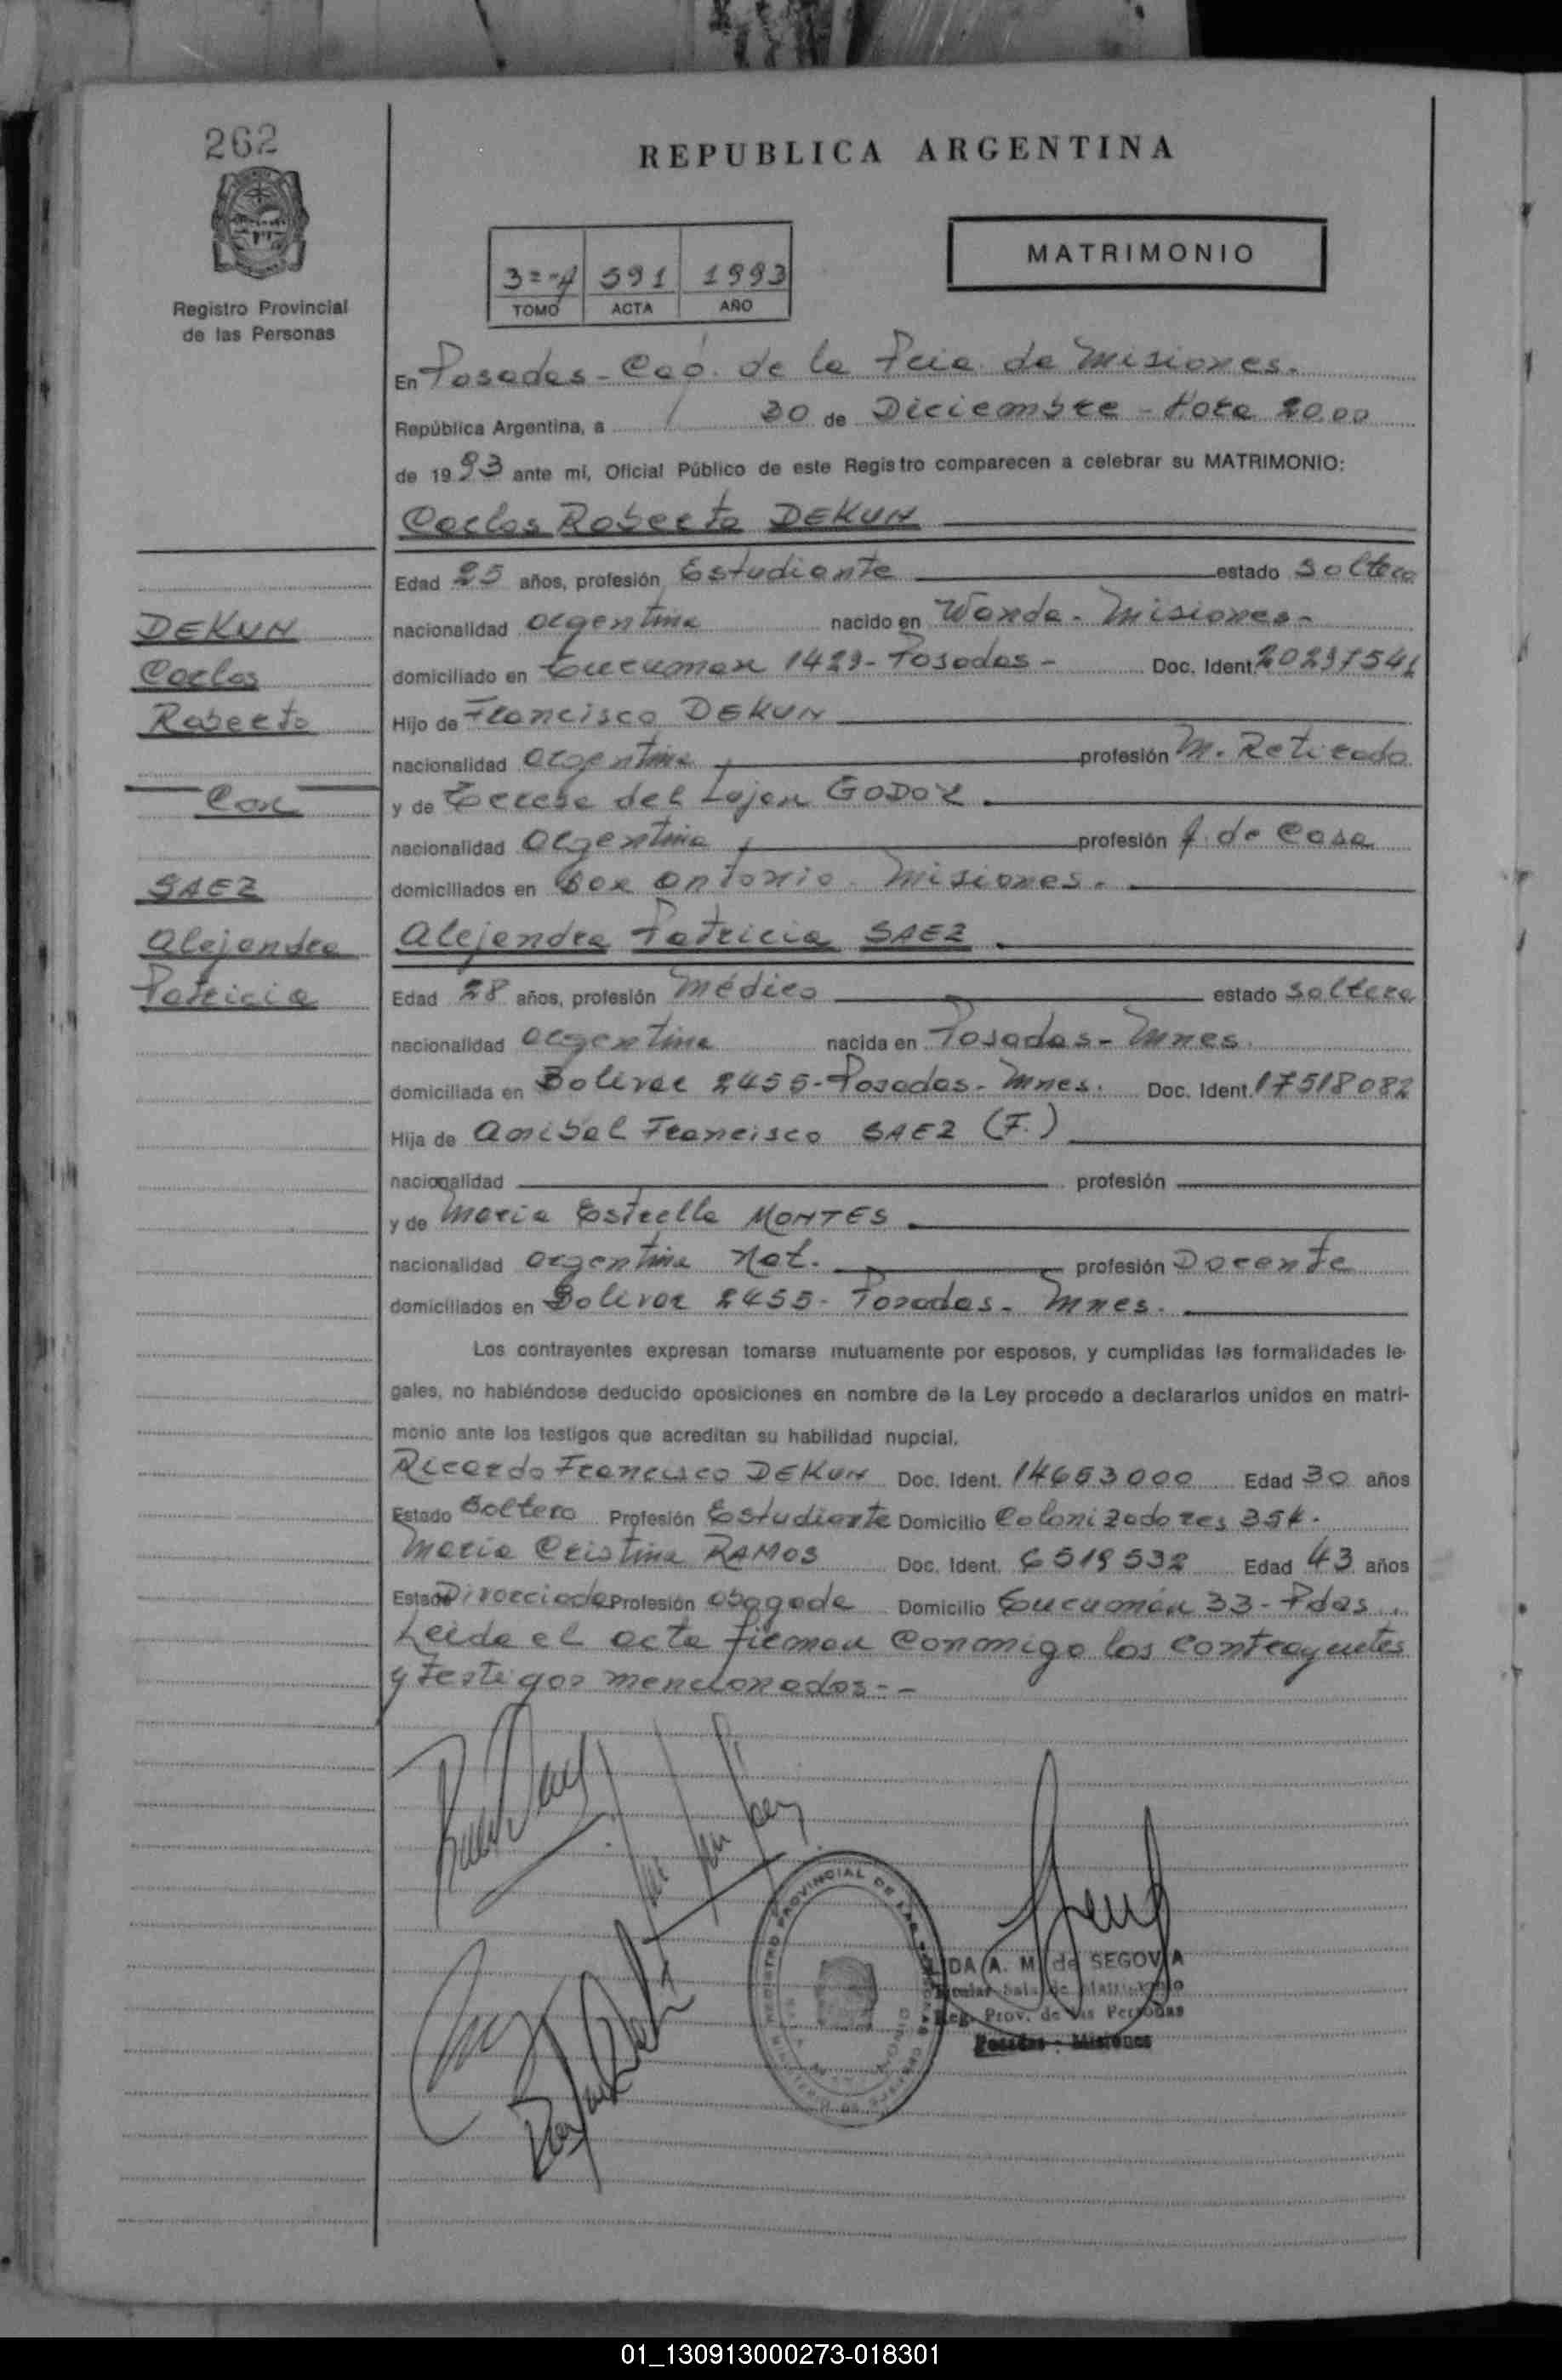 262
REPUBLICA ARGENTINA
MATRIMONIO
Registro Provincial
de las Personas
3º-A 591 1993
TOMO ACTA AÑO
En Posadas - Cap. de la Pcia. de Misiones.
República Argentina, a 30 de Diciembre - Hora 20,00
de 1993 ante mi, Oficial Público de este Registro comparecen a celebrar su MATRIMONIO:
Carlos Roberto DEKUN
Edad 25 años, profesión Estudiante estado Soltero
nacionalidad argentina nacido en Wanda - Misiones -
domiciliado en Tucuman 1429 - Posadas - Doc. Ident. 20297541
Hijo de Francisco DEKUN
nacionalidad argentina profesión M. Retirado
y de Teresa del Lujan GODOY
nacionalidad argentina profesión A. de Casa
domiciliados en San Antonio - Misiones.
Alejandra Patricia SAEZ
Edad 28 años, profesión Médica estado Soltera
nacionalidad argentina nacida en Posadas - Mnes.
domiciliada en Bolivar 2455 - Posadas - Mnes. Doc. Ident. 17518082
Hija de Anibal Francisco SAEZ (F.)
nacionalidad profesión
y de Maria Estrella MONTES
nacionalidad argentina Nat. profesión Docente
domiciliados en Bolivar 2455 - Posadas - Mnes.
Los contrayentes expresan tomarse mutuamente por esposos, y cumplidas las formalidades le-
gales, no habiéndose deducido oposiciones en nombre de la Ley procedo a declararlos unidos en matri-
monio ante los testigos que acreditan su habilidad nupcial.
Ricardo Francisco DEKUN Doc. Ident. 14653000 Edad 30 años
Estado Soltero Profesión Estudiante Domicilio Colonizadores 354.
Maria Cristina RAMOS Doc. Ident. 6519532 Edad 43 años
Estado Divorciada Profesión abogada Domicilio Tucumán 33 - Pdas.
Leida el acta firman conmigo los contrayentes
y testigos mencionados - -
DEKUN
Carlos
Roberto
Con
SAEZ
Alejandra
Patricia
REGISTRO PROVINCIAL DE LAS PERSONAS
DA A. M. de SEGOVIA
Titular Sala de Matrimonio
Reg. Prov. de las Personas
Posadas - Misiones
01_130913000273-018301